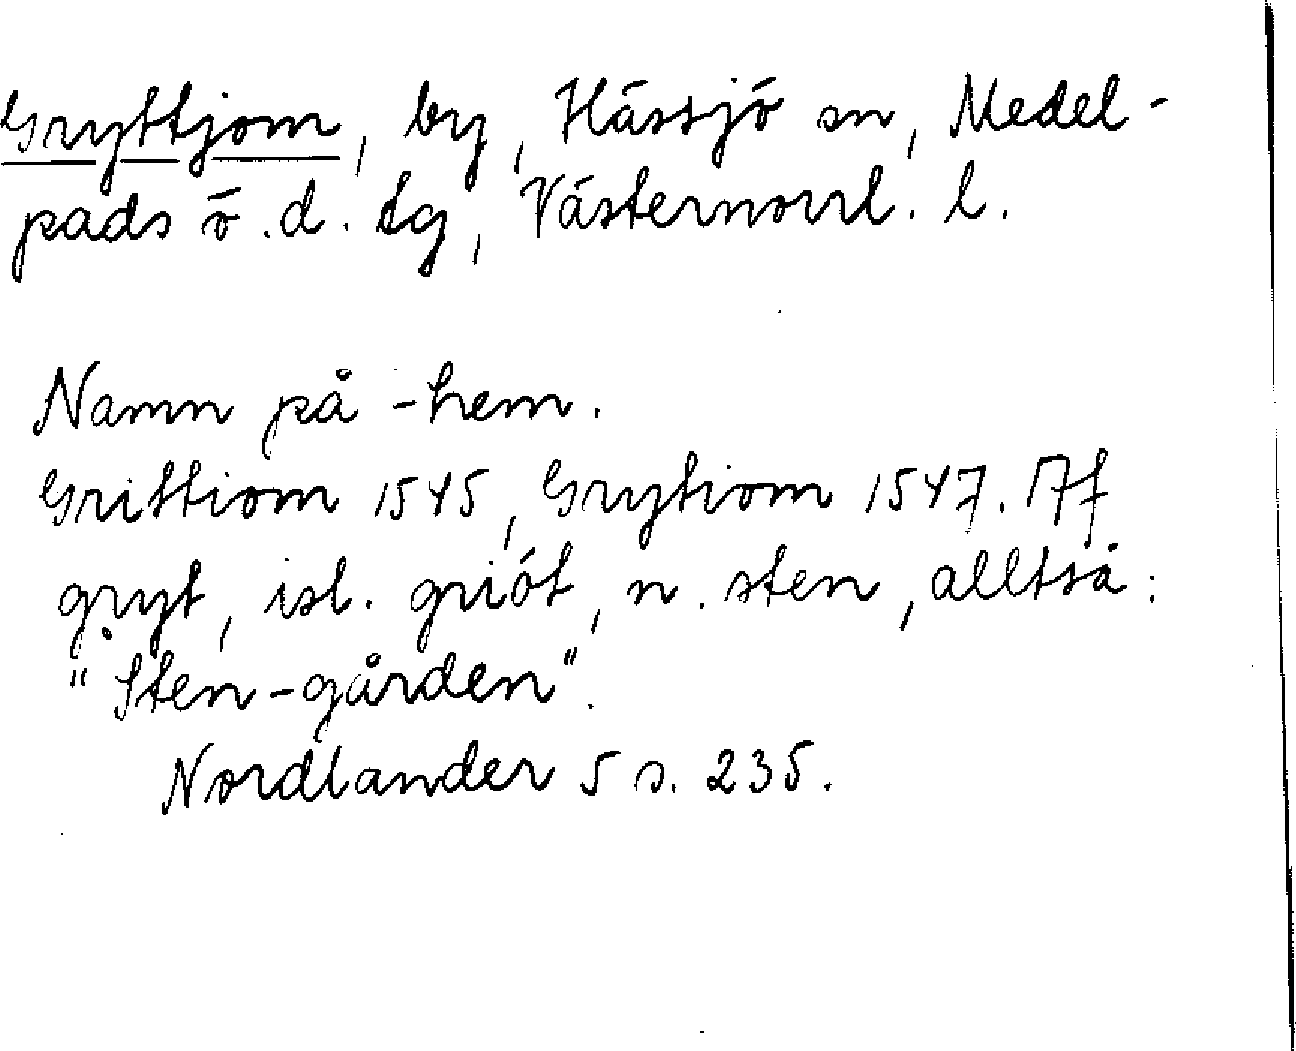 Gryttjom, by, Hässjö sn, Medel-
pads ö.d. tg, Västernorrl. l.
Namn på -hem.
Grittiom 1545, Grytiom 1547. Af
gryt, isl. griót, n. sten, alltså:
"Sten-gården".
Nordlander 5 s. 235.